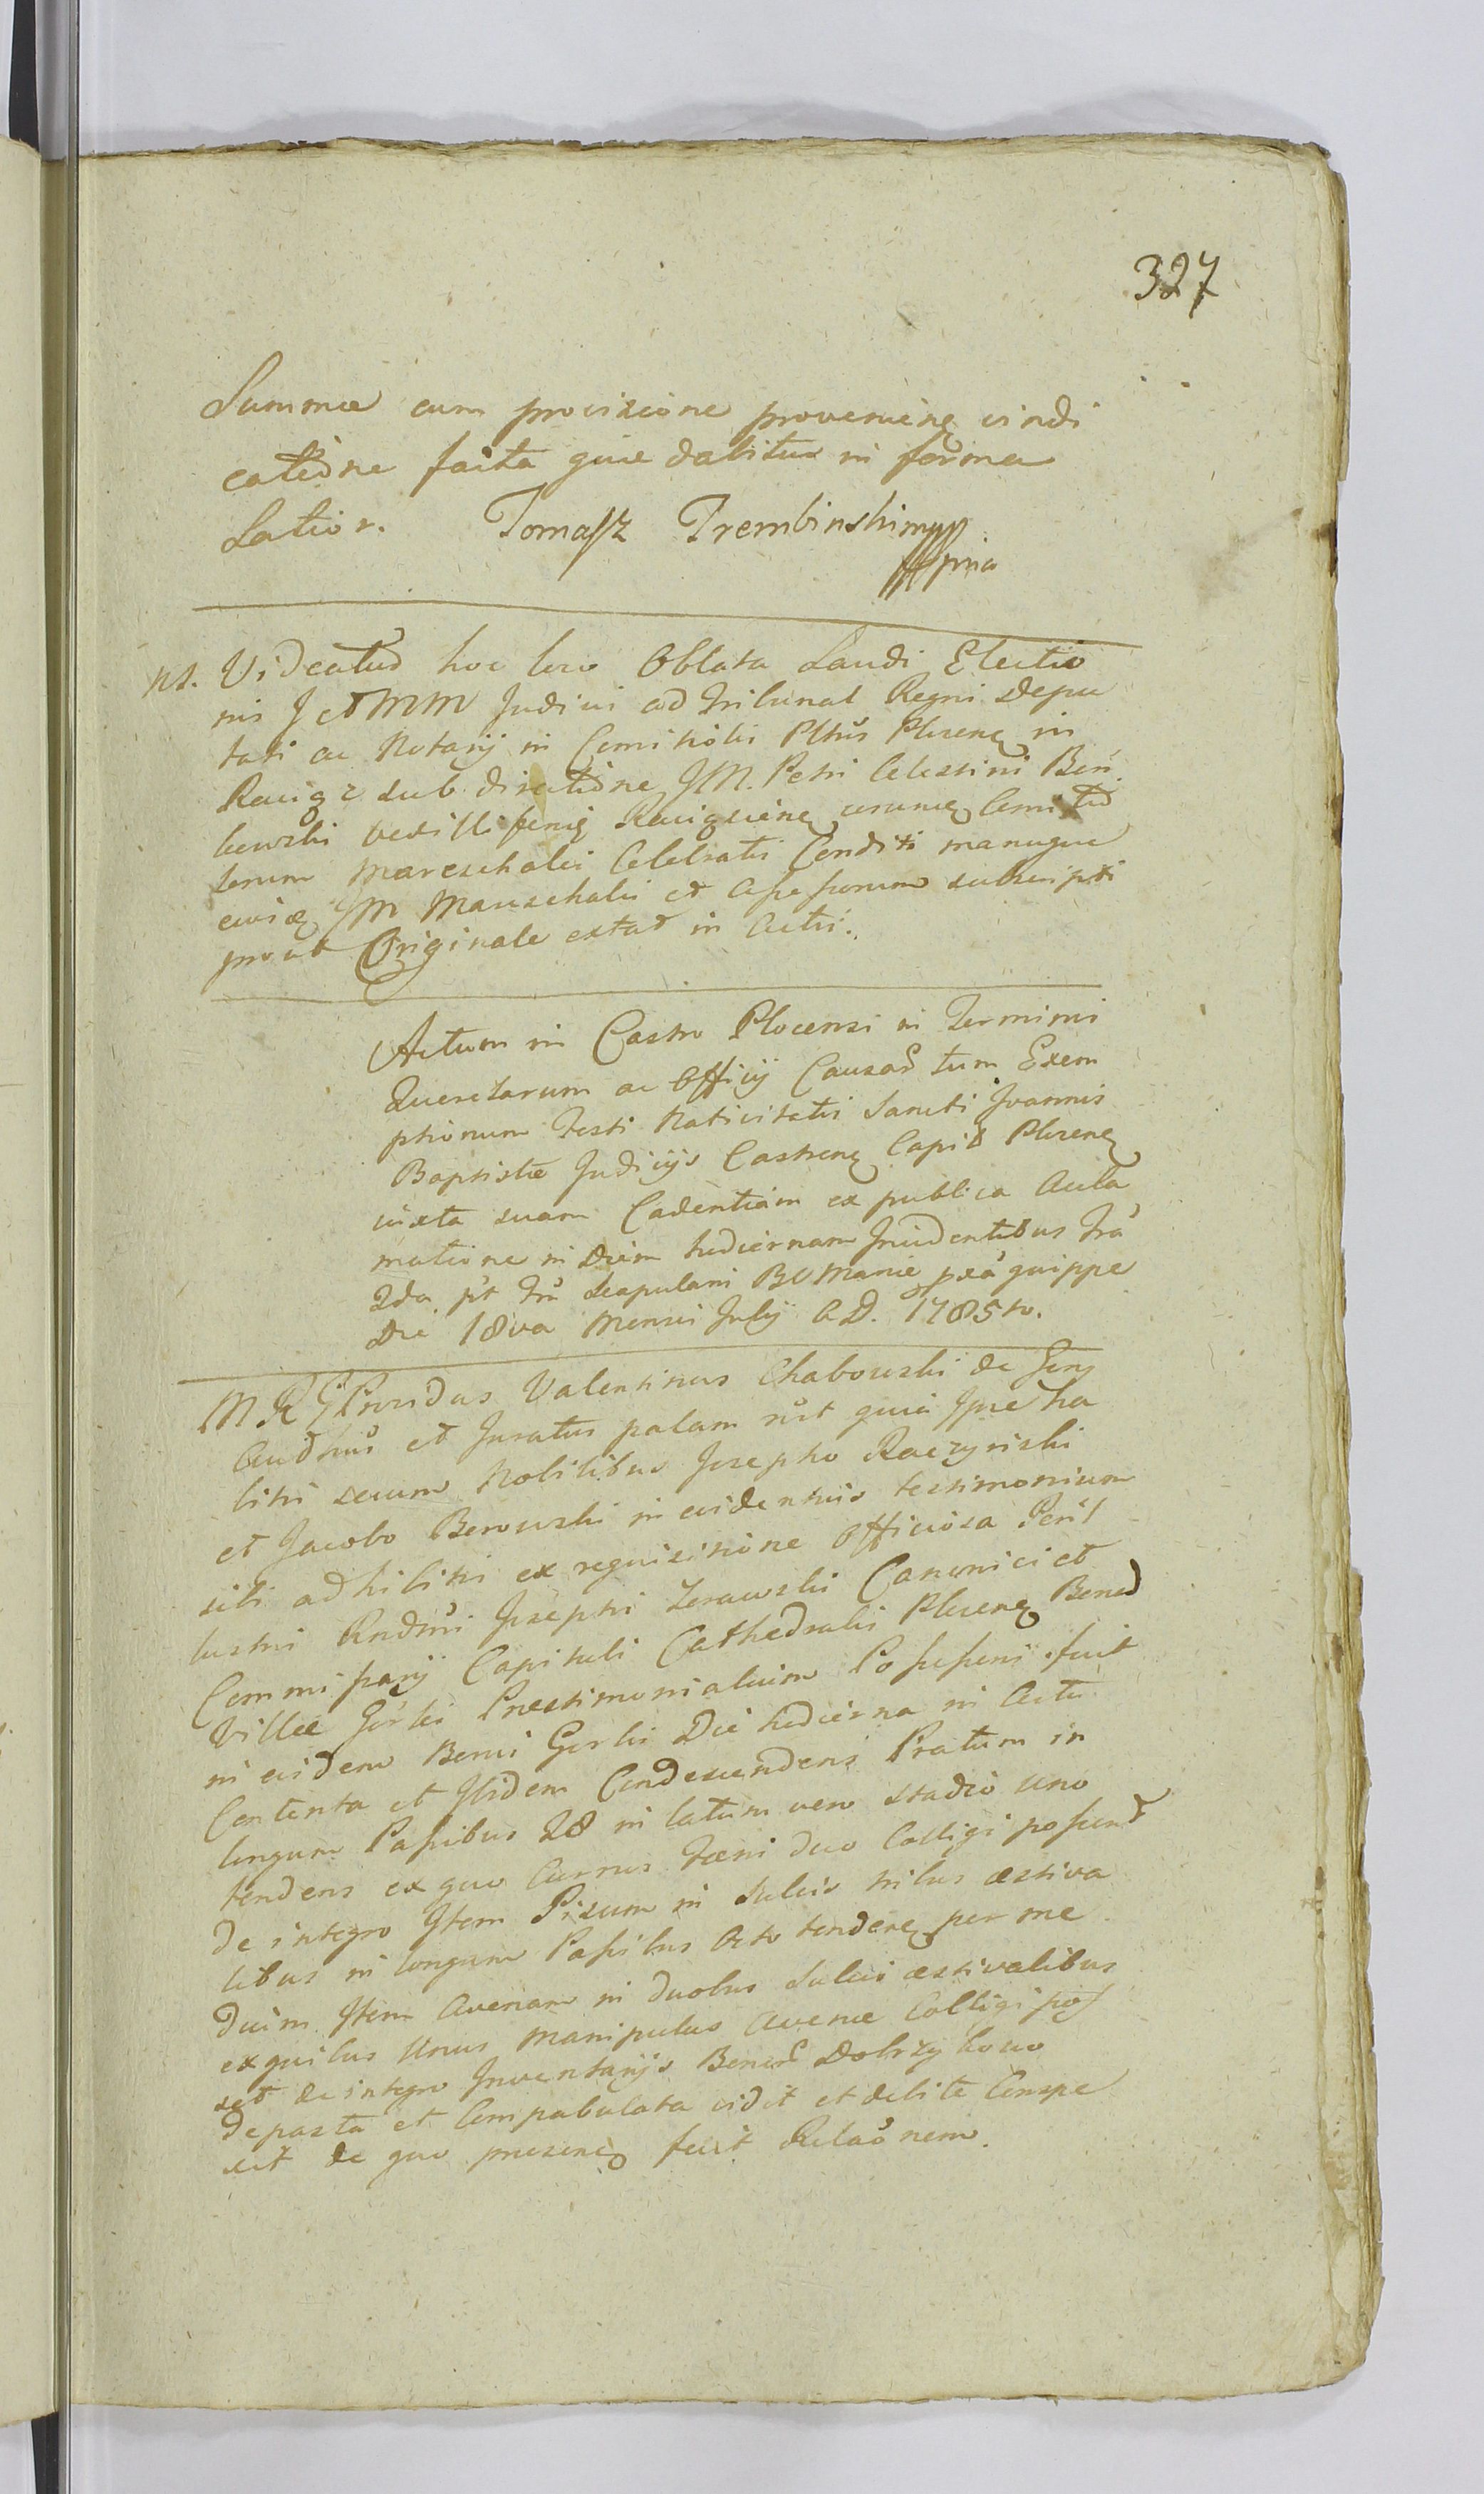 327
Summæ cum provisione provenienę vindi
catiōne faćta quæ dabitur in forma
Latior. Tomasz Trembinski mpp
mpria
NB. Videatur hoc loco Oblata Laudi Electio
nis J et MM Judicii ad Tribunal Regni Depu
tati ac Notarÿ in Comitiolis Pltūs Plocenę in
Raciąz sub directiōne JM. Petri Celestini Bęn
kowski Vexilliferię Raciązienę eorumę Comitio
lorum Mareschalci Celebratis Conditi manuque
eiusę JM Mareschalci et Assessorum subscripti
prout Originale extat in Actis.
Actum in Castro Plocensi in Terminis
Querelarum ac Officÿ Causar̃ tum Exem
ptionum Festi Nativitatis Sancti Joannis
Baptistæ Judicÿs Castrenę Capit̃ Plocenę
iuxta suam Cadentiam ex publica Accla
matione in Diem hodiernam Incidentibus Fra
2da p̃t Fm̃ Scapularis BVMariæ px̃a quippe
Die 18va Mensis Julÿ A.D. 1785to.
MRG Providus Valentinus Chabowski de Gens
Aud̃rus et Juratus palam rũt quia Ipse ha
bitis secum Nobilibus Josepho Raczynski
et Jacobo Berowski in evidentius testimonium
sibi adhibitis ex requisitione Officiosa Peril
lustris Rndm̃i Josephi Zerawski Canonici et
Commissarÿ Capituli Cathedralis Plocenę Bonor̃
Villæ Górki Præstimonialium Possessoris fuit
in eisdem Bonis Gorki Die hodierna in Actu
Contenta et Ibidem Condescendens Pratum in
longum Passibus 28 in latum vero stadio uno
tendens ex quo Currus Fæni duo Colligi possunt
de integro Item Pisum in sulcis tribus æstiva
libus in longum Passibus Octo tendenę per me
dium Item Avenam in duobus sulcis æstivalibus
ex quibus Unus Manipulus Avenæ Colligi pos
set de integro Inventarÿs Bonor̃ Dobrzykowo
depasta et Compabulata vidit et debite Conspe
xit de quo presenę fecit Relaõnem.